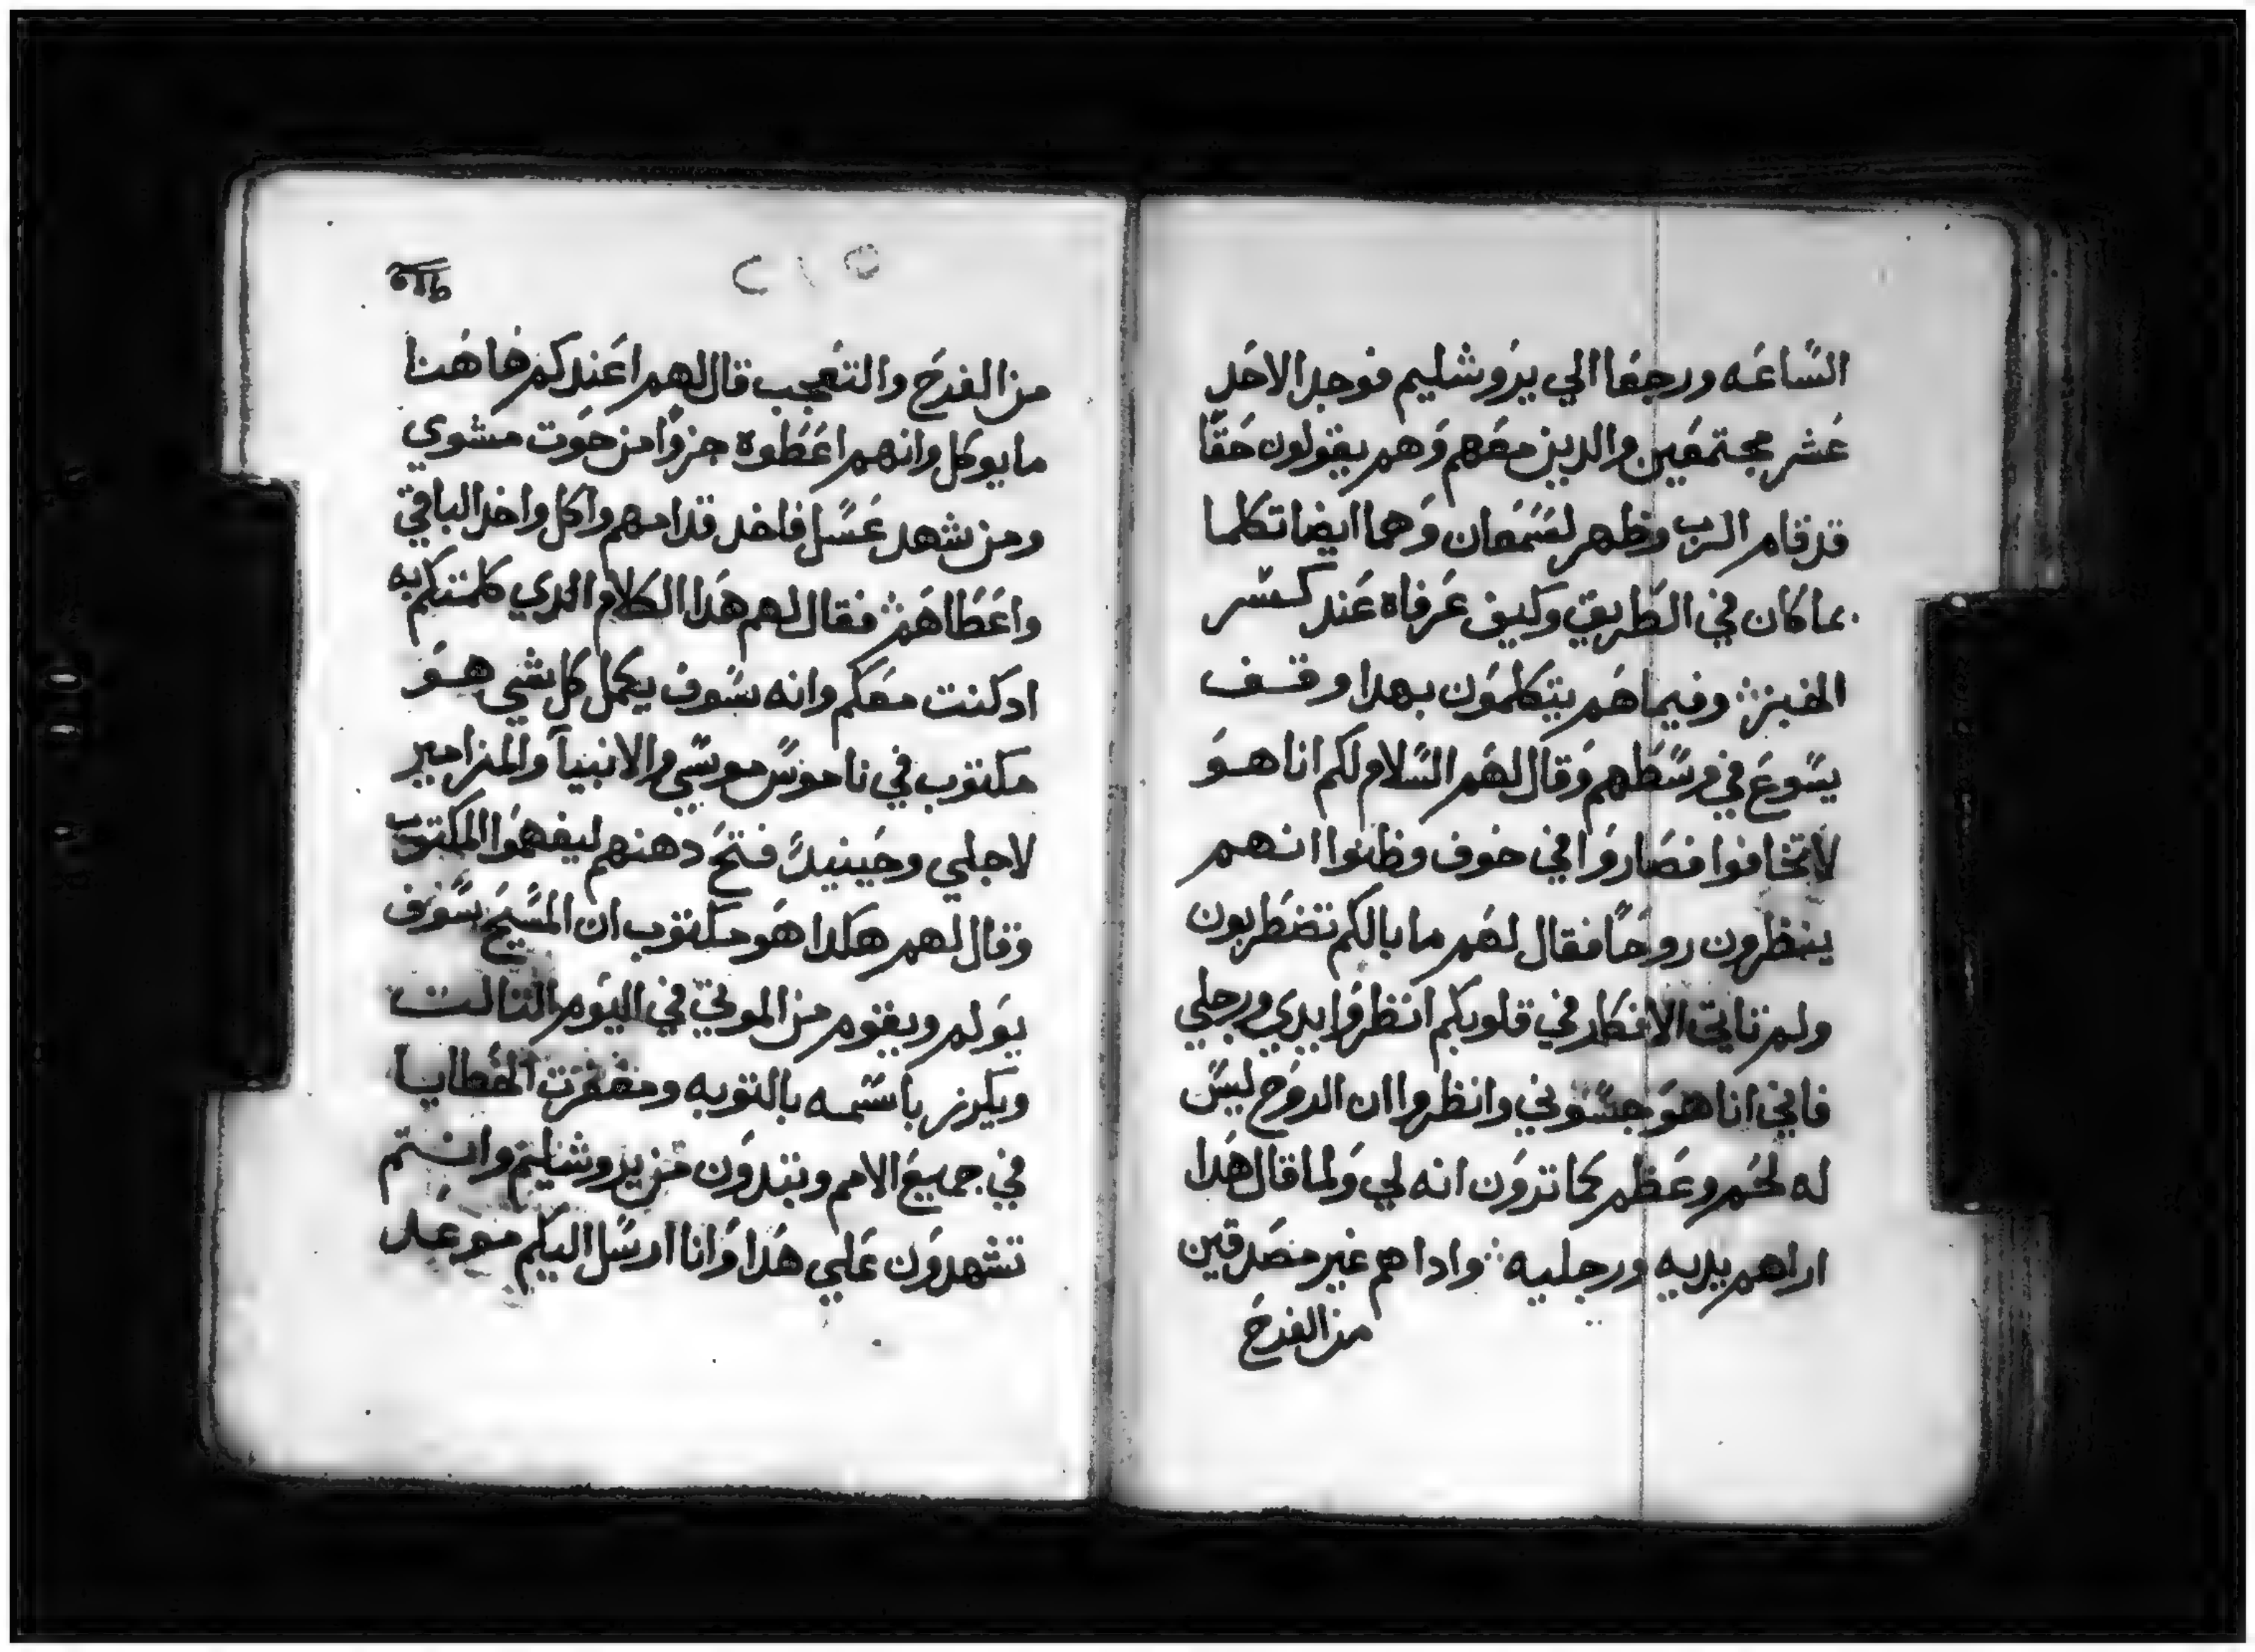 الساعه ورجعا الي يروشليم فوجدا الاحد
عشر مجتمعين والدين معهم وهم يقولون حقا
قد قام الرب وظهر لسمعان وهما ايضا تكلما
بما كان في الطريق وكيف عرفاه عند كسر
الخبز وفيما هم يتكلمون بهدا وقف
يسوع في وسطهم وقال لهم السلام لكم انا هو
لا تخافوا فصاروا في خوف وظنوا انهم
ينظرون روحا فقال لهم ما بالكم تضطربون
ولم تاتي الافكار في قلوبكم انظروا يدي ورجلي
فاني انا هو جسوني وانظروا ان الروح ليس
له لحم وعظم كما ترون انه لي ولما قال هدا
اراهم يديه ورجليه وادا هم غير مصدقين
من الفرح
٢١٥
من الفرح والتعجب قال لهم اعندكم هاهنا
ما يوكل وانهم اعطوه جزوا من حوت مشوي
ومن شهد عسل فاخد قدامهم واكل واخد الباقي
واعطاهم فقال لهم هدا الكلام الدي كلمتكم به
اد كنت معكم وانه سوف يكمل كل شي هو
مكتوب في ناموس موسي والانبيآ والمزامير
لاجلي وحينيدً فتح دهنهم ليفهموا المكتوب
وقال لهم هكدا هو مكتوب ان المسيح سوف
يولم ويقوم من الموتي في اليوم التالت
ويكرز باسمه بالتوبه ومغفرت الخطايا
في جميع الامم وبتدون من يروشليم وانتم
تشهدون علي هدا وانا ارسل اليكم موعد